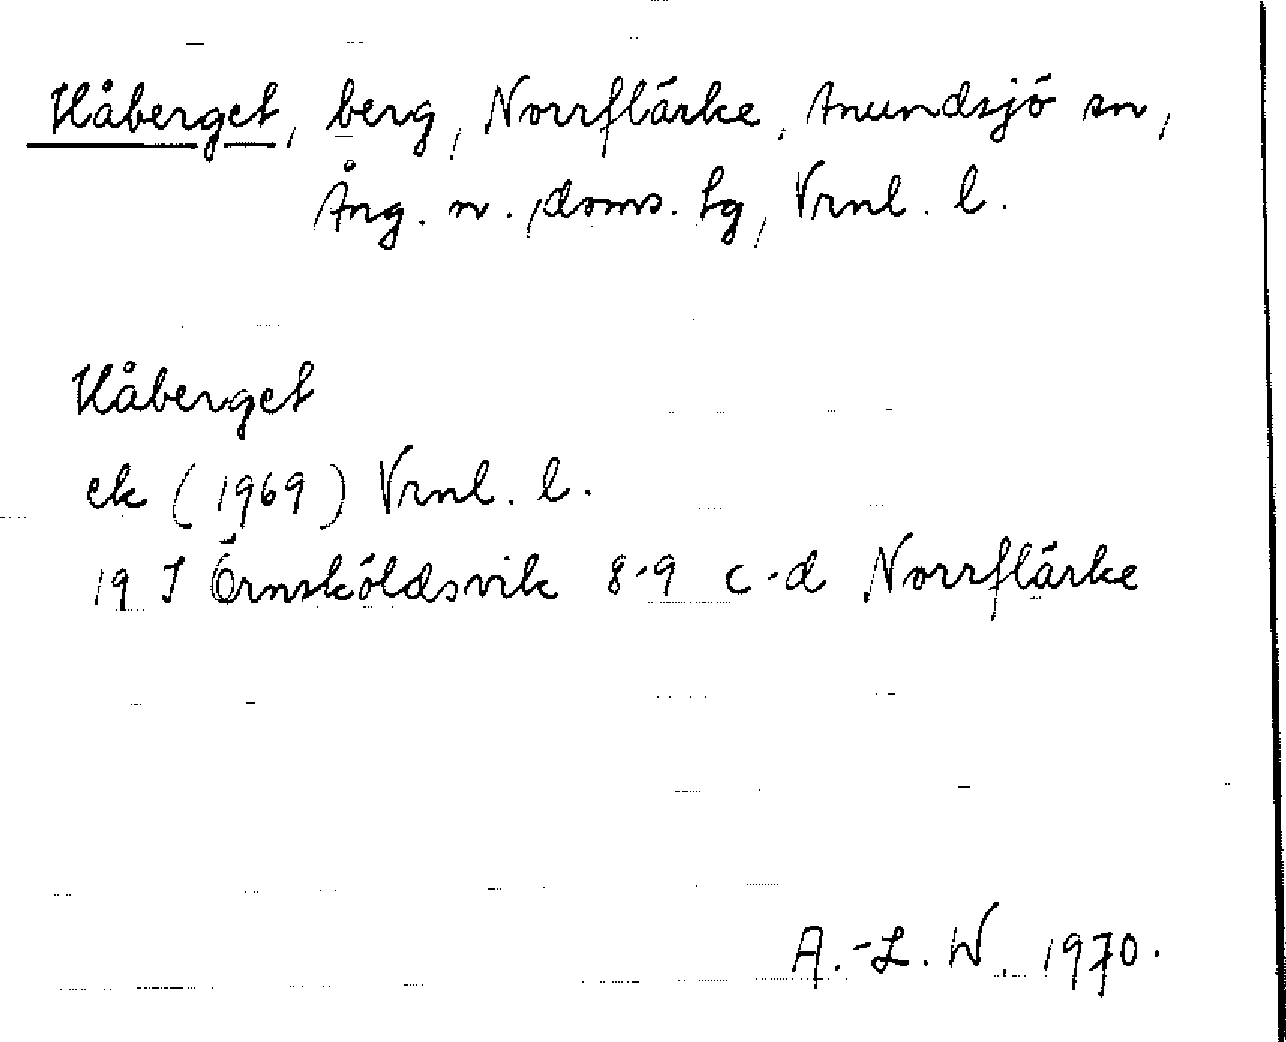 Håberget, berg, Norrflärke, Anundsjö sn,
Ång. n., doms. hg, Vrnl. l.
Håberget
ek (1969) Vrnl. l.
19 I Örnsköldsvik 8-9 c-d Norrflärke
A.-L. W. 1970.